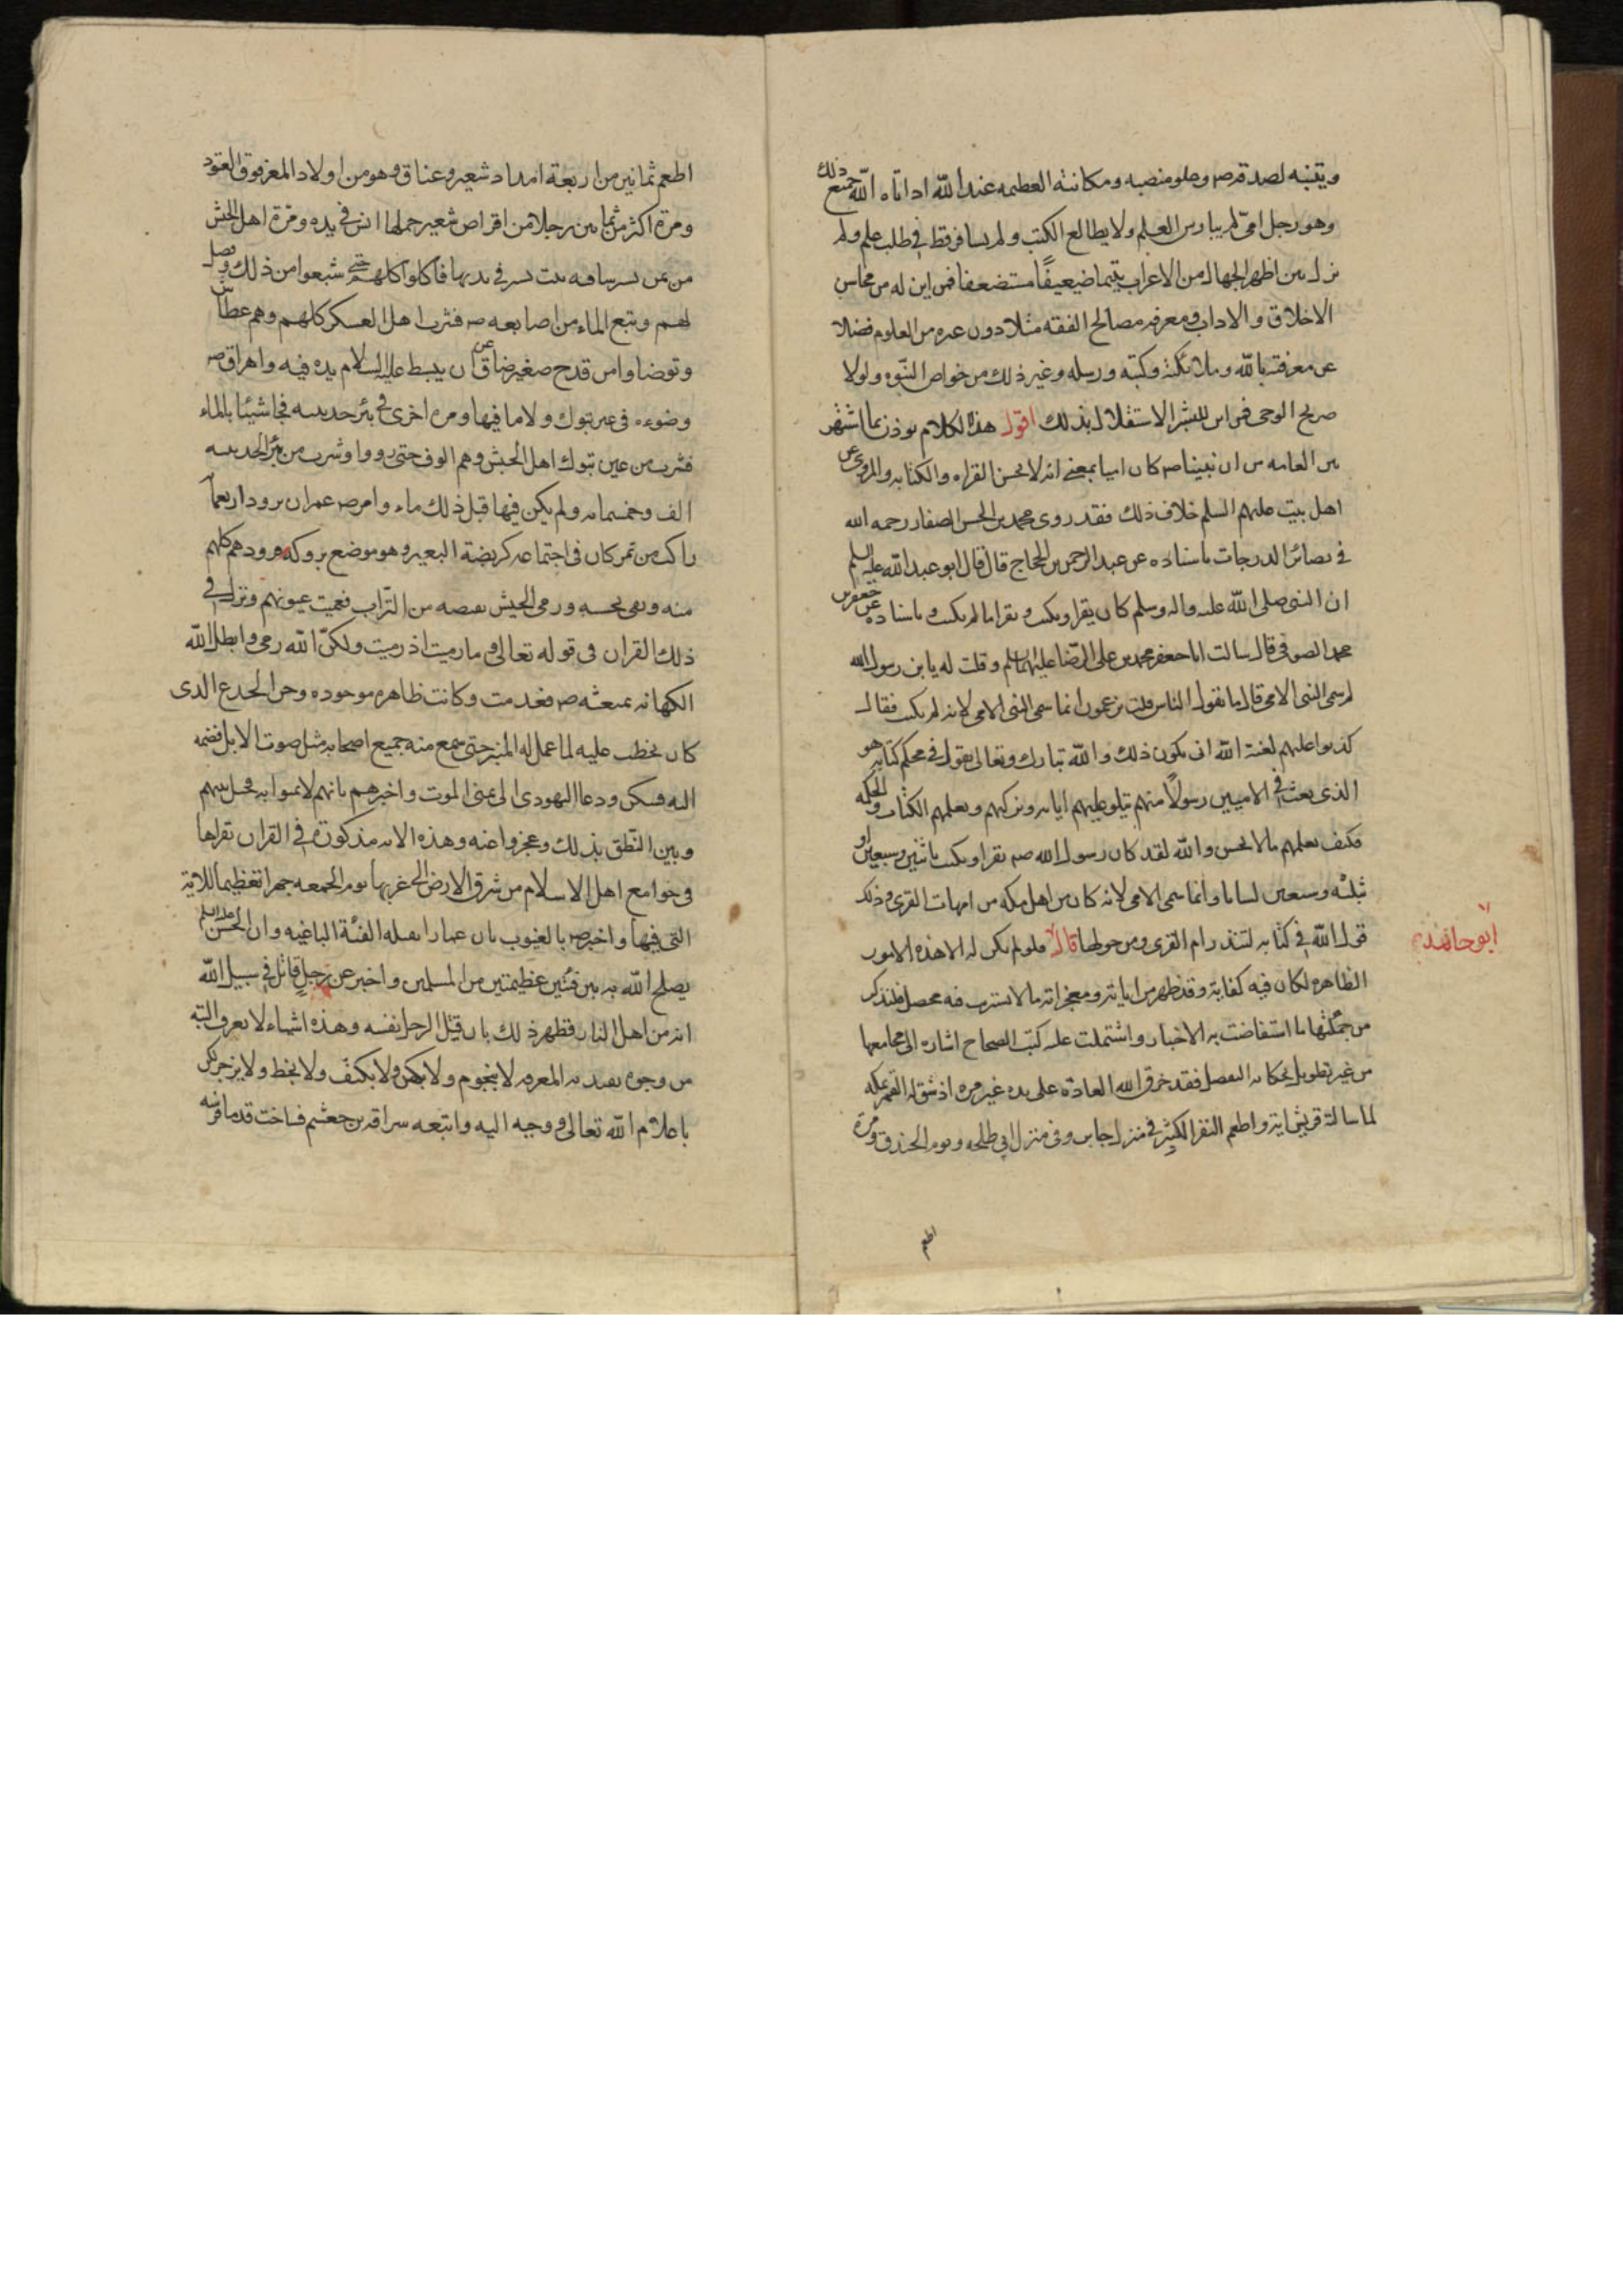 ويتنبه لصدقه ص وعلو منصبه ومكانته العظيمه عند الله اذ اتاه الله جميع ذلك
وهو رجل امى لم يمارس العلم ولا يطالع الكتب ولم يسافر قط فى طلب علم ولم
نزل بين اظهر الجهال من الاعراب يتيما ضعيفًا مستضعفا فمن اين له من محاسن
الاخلاق و الاداب ومعرفه مصالح الفقه مثلا دون غيره من العلوم فضلا
عن معرفته بالله و ملائكته وكتبه ورسله وغير ذلك من خواص النبّوه ولولا
صريح الوحى فمن اين للبشر الاستقلال بذلك اقول هذا الكلام يوذن بما اشتهر
بين العامه من ان نبينا ص كان اميا بمعنى انه لا يحسن القراه والكتابه والمروى عن
اهل بيت عليهم السلم خلاف ذلك فقد روى محمد بن الحسن الصفار رحمه الله
فى بصائر الدرجات باسناده عن عبد الرحمن بن الحجاج قال قال ابو عبد الله عليه السلم
ان النبى صلى الله عليه واله وسلم كان يقرا ويكتب ويقرا ما لم يكتب و باسناده عن جعفر بن
محمد الصوفى قال سالت ابا جعفر محمد بن على الرّضا عليهما السلم وقلت له يا بن رسول الله
لم سمى النبى الامى قال ما يقول الناس قلت يزعمون انما سمى النبى الامى لانه لم يكتب فقال
كذبوا عليهم لعنة الله انى يكون ذلك و الله تبارك وتعالى يقول فى محكم كتابه هو
الذى بعث فى الاميين رسولاً منهم يتلو عليهم اياته ويزكيهم ويعلمهم الكتاب والحكمه
فكيف يعلمهم ما لا يحسن والله لقد كان رسول الله ص يقرا ويكتب باثنين وسبعين او
ثلثه وسبعين لسانا وانما سمى الامى لانه كان من اهل مكه من امهات القرى وذلك
قول الله فى كتابه لتنذر ام القرى ومن حولها قال فلو لم يكن له الا هذه الامور
ابو حامد
الظاهره لكان فيه كفاية وقد ظهر من اياته ومعجزاته ما لا يستريب فيه محصل فلنذكر
من جملتها ما استفاضت به الاخبار واشتملت عليه كتب الصحاح اشاره الى مجامعها
من غير تطويل بحكايه التفصيل فقد خرق الله العادة على يده غير مره اذ شق له القمر بمكه
لما سالته قريش ايه واطعم النفر الكثير فى منزل جابر وفى منزل ابى طلحه ويوم الخندق ومرة
اطعم
اطعم ثمانين من اربعة امداد شعير وعناق وهو من اولاد المعز فوق العتود
ومرة اكثر من ثمانين رجلا من اقراص شعير حملها انس فى يده ومرّة اهل الجيش
من تمر يسير ساقه بنت بشر فى يديها فاكلوا كلهم حتى شبعوا من ذلك وفضل
لهم و نبع الماء من اصابعه ص فشرب اهل العسكر كلهم وهم عطاش
وتوضاوا من قدح صغير ضاق عن ان يبسط عليه السلام يده فيه واهراق ص
وضوءه فى عين تبوك ولا ما فيها ومره اخرى فى بئر حديبيه فجاشتا بالماء
فشرب من عين تبوك اهل الجيش وهم الوف حتى رووا وشرب من بئر الحديبيه
الف وخمسمايه ولم يكن فيها قبل ذلك ماء وامر ص عمر ان يزود اربعمايه
راكب من تمر كان فى اجتماعه كربضة البعير وهو موضع بروكه فزودهم كلهم
منه وبقى بحسبه ورمى الجيش بقبضه من التّراب فعميت عيونهم ونزل فى
ذلك القران فى قوله تعالى وما رميت اذ رميت ولكنّ الله رمى وابطل الله
الكهانه بمبعثه ص فعدمت وكانت ظاهره موجوده وحن الجذع الذى
كان يخطب عليه لما عمل له المنبر حتى سمع منه جميع اصحابه مثل صوت الابل فضمه
اليه فسكن ودعا اليهود الى تمنى الموت واخبرهم بانهم لا يتمنوا به فحيل بينهم
وبين النّطق بذلك وعجزوا عنه وهذه الايه مذكورة فى القران تقراها
فى جوامع اهل الاسلام من شرق الارض الى غربها يوم الجمعه جهرا تعظيما للاية
التى فيها واخبر ص بالغيوب بان عمارا يقتله الفئة الباغيه وان الحسن عليه السلم
يصلح الله به بين فئتين عظيمتين من المسلمين واخبر عن رجل قاتل فى سبيل الله
انه من اهل النار فظهر ذلك بان قتل الرجل نفسه وهذه اشياء لا يعرف البته
من وجوه تقدمه المعرفه لا بنجوم ولا بكهن ولا بكتف ولا بخط ولا بزجر لكن
باعلام الله تعالى ووحيه اليه واتبعه سراقه بن جعشم فساخت قدما فرسه